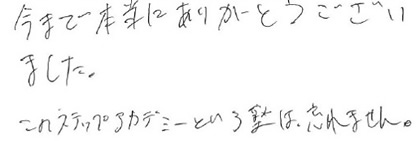 今まで本当にありがとうござい
ました。
このステップアカデミーという塾は、忘れません。